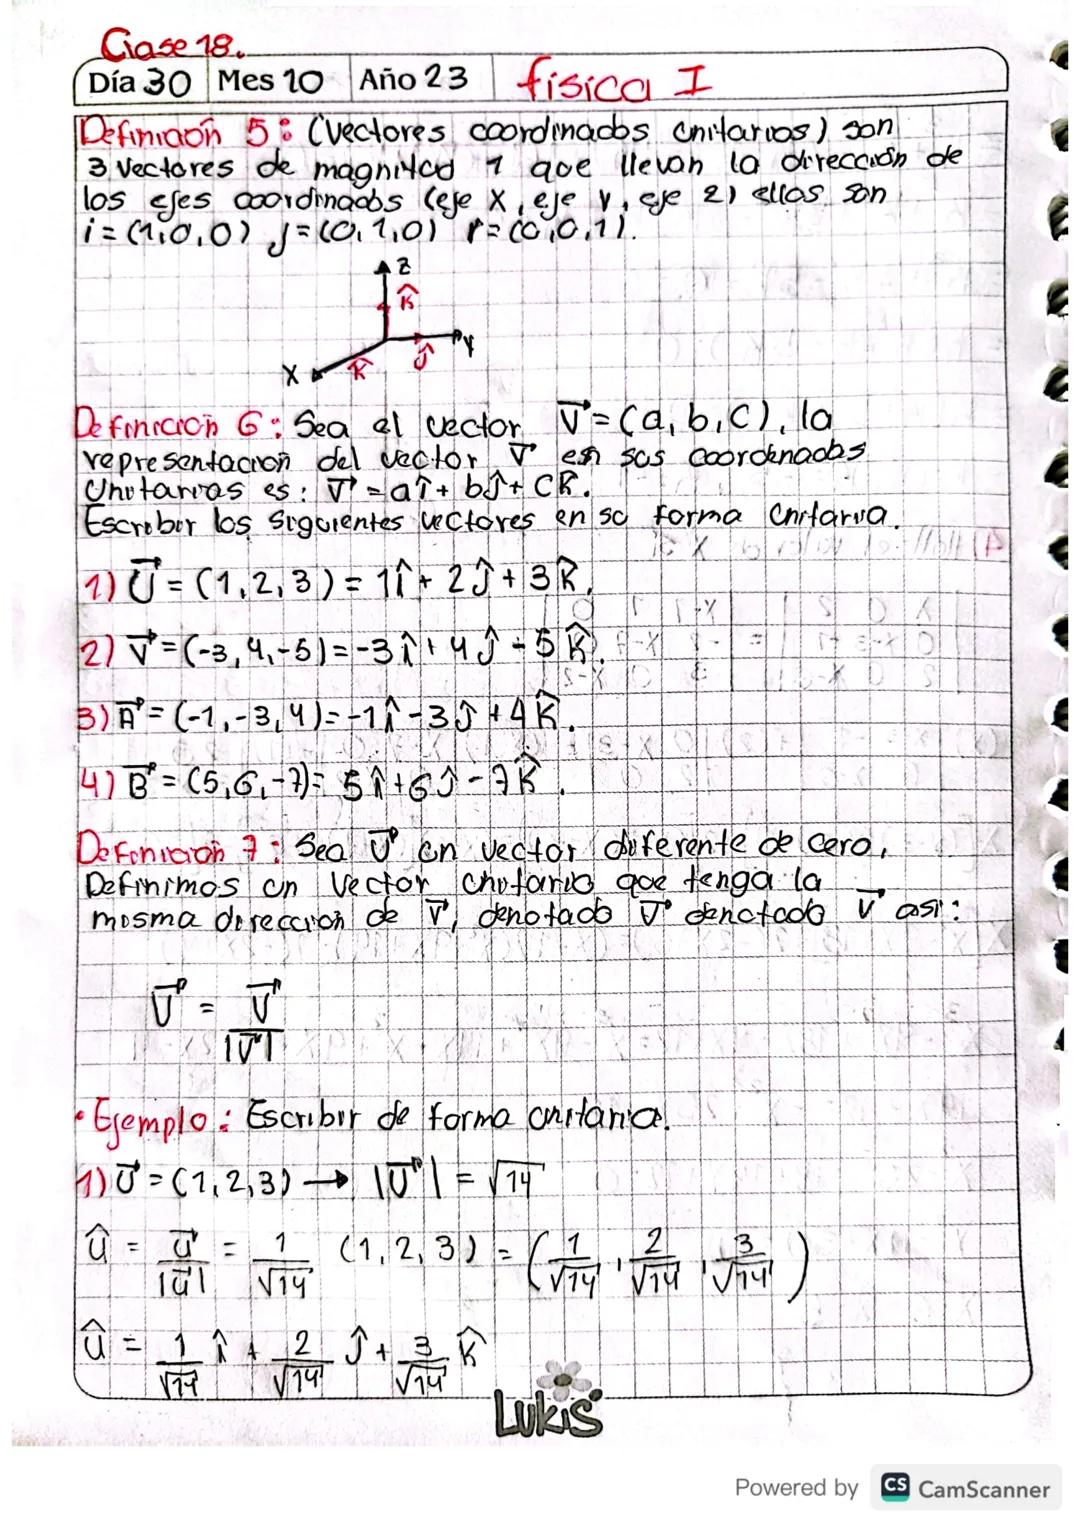 Clase 18.
Día 30 Mes 10 Año 23 física I
Definición 5: (Vectores coordinados unitarios) son
3 vectores de magnitud 1 que llevan la dirección de
los ejes coordinados (eje X, eje Y, eje Z) ellos son
i = (1,0,0) j = (0,1,0) k = (0,0,1).
Z
K̂
Y
Ĵ
X
K̂
Definición 6: Sea el vector V⃗ = (a, b, c), la
representación del vector V⃗ en sus coordenadas
Unitarias es: V⃗ = aî + bĵ + ck̂.
Escribir los siguientes vectores en su forma Unitaria.
1) U⃗ = (1,2,3) = 1î + 2ĵ + 3k̂.
2) V⃗ = (-3,4,-5) = -3î + 4ĵ - 5k̂.
3) A⃗ = (-1,-3,4) = -1î - 3ĵ + 4k̂.
4) B⃗ = (5,6,-7) = 5î + 6ĵ - 7k̂.
Definición 7: Sea U⃗ un vector diferente de cero,
Definimos un vector Unitario que tenga la
misma dirección de V⃗, denotado U⃗ denotado V⃗ asi:
U⃗ = V⃗ / |V⃗|
• Ejemplo: Escribir de forma unitaria.
1) U⃗ = (1,2,3) → |U⃗| = √14
û = u⃗ / |u⃗| = 1/√14 (1,2,3) = (1/√14, 2/√14, 3/√14)
û = 1/√14 î + 2/√14 ĵ + 3/√14 k̂
LUKIS
Powered by CS CamScanner